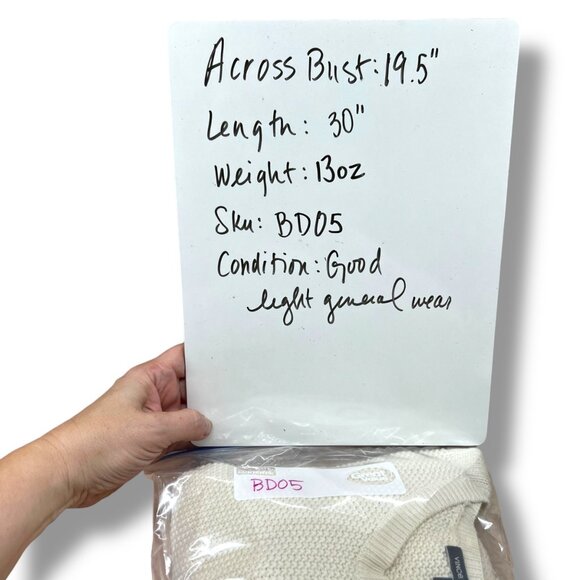 Across Bust: 19.5"
Length: 30"
Weight: 13oz
Sku: BD05
Condition: Good
light general wear
BD05